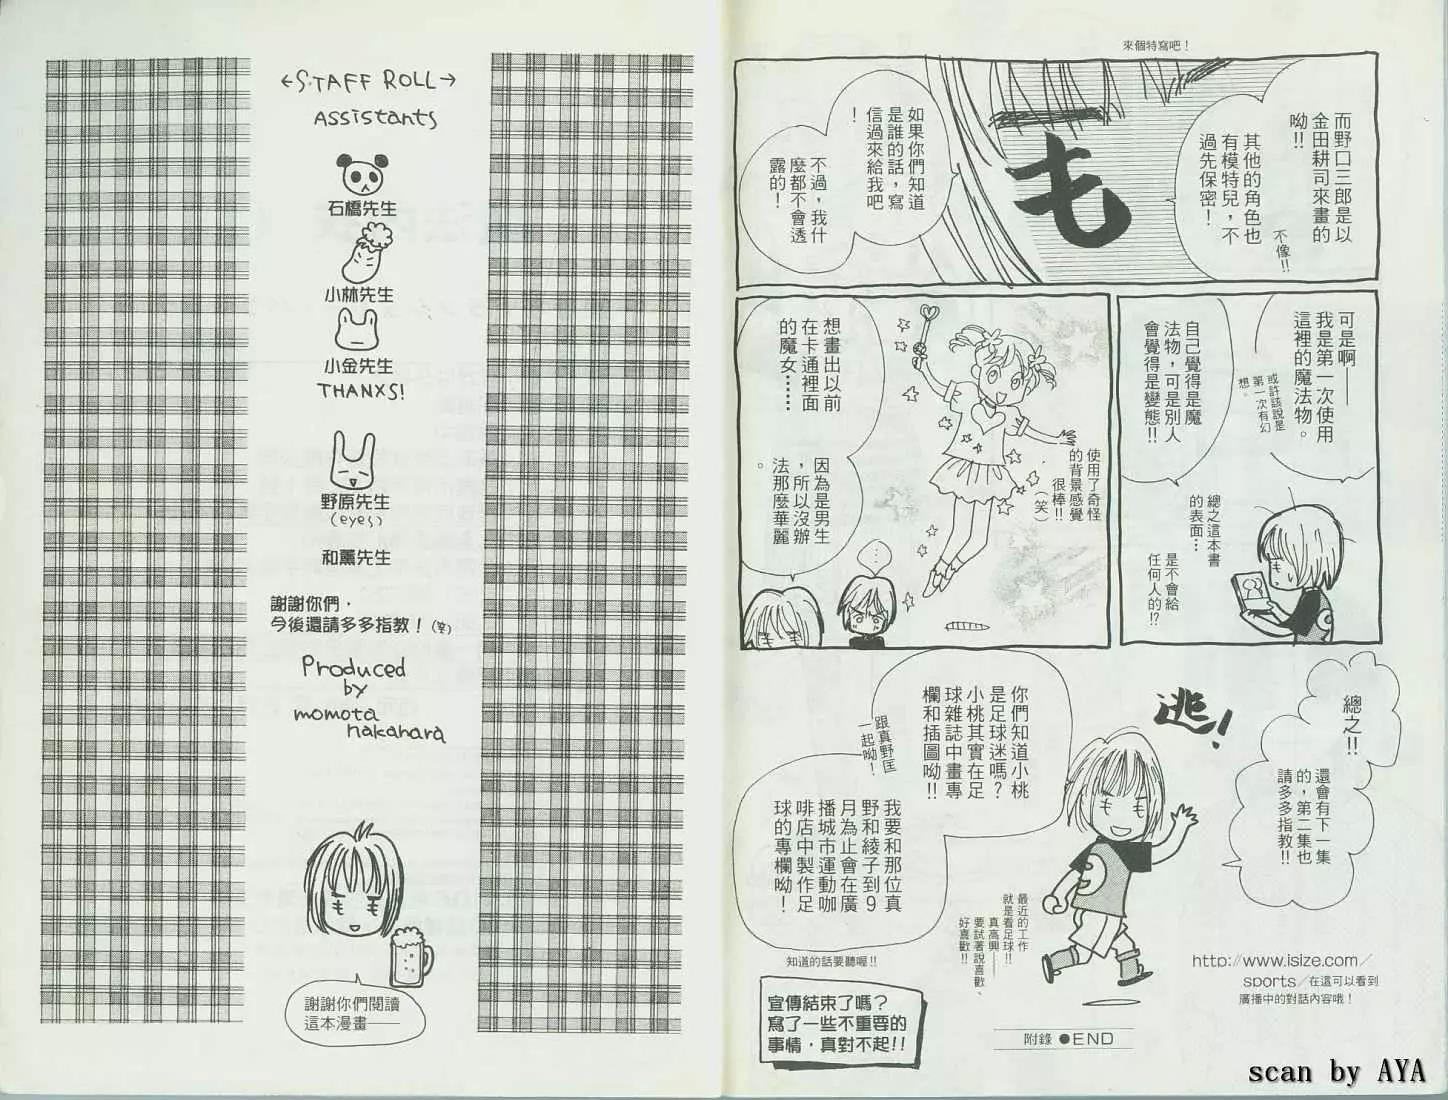 來個特寫吧！
而野口三郎是以
金田耕司來畫的
呦!!
其他的角色也
有模特兒，不
過先保密！
不像!!
も
如果你們知道
是誰的話，寫
信過來給我吧
！
不過，我什
麼都不會透
露的！
可是啊——
我是第一次使用
這裡的魔法物。
或許該說是
第一次有幻
想。
自己覺得是魔
法物，可是別人
會覺得是變態!!
總之這本書
的表面…
是不會給
任何人的!?
使用了奇怪
的背景感覺
很棒!!
（笑）
想畫出以前
在卡通裡面
的魔女……
因為是男生
，所以沒辦
法那麼華麗
。
…
總之!!
還會有下一集
的，第二集也
請多多指教!!
逃！
你們知道小桃
是足球迷嗎？
小桃其實在足
球雜誌中畫專
欄和插圖呦!!
跟真野匡
一起呦！
我要和那位真
野和綾子到9
月為止會在廣
播城市運動咖
啡店中製作足
球的專欄呦！
知道的話要聽喔!!
最近的工作
就是看足球!!
真高興——
要試著說喜歡、
好喜歡!!
http://www.isize.com/
sports/在這可以看到
廣播中的對話內容哦！
宣傳結束了嗎？
寫了一些不重要的
事情，真對不起!!
附錄●END
←STAFF ROLL→
Assistants
石橋先生
小林先生
小金先生
THANXS!
野原先生
(eyes)
和薰先生
謝謝你們，
今後還請多多指教！(笑)
Produced
by
momota
nakahara
謝謝你們閱讀
這本漫畫——
scan by AYA